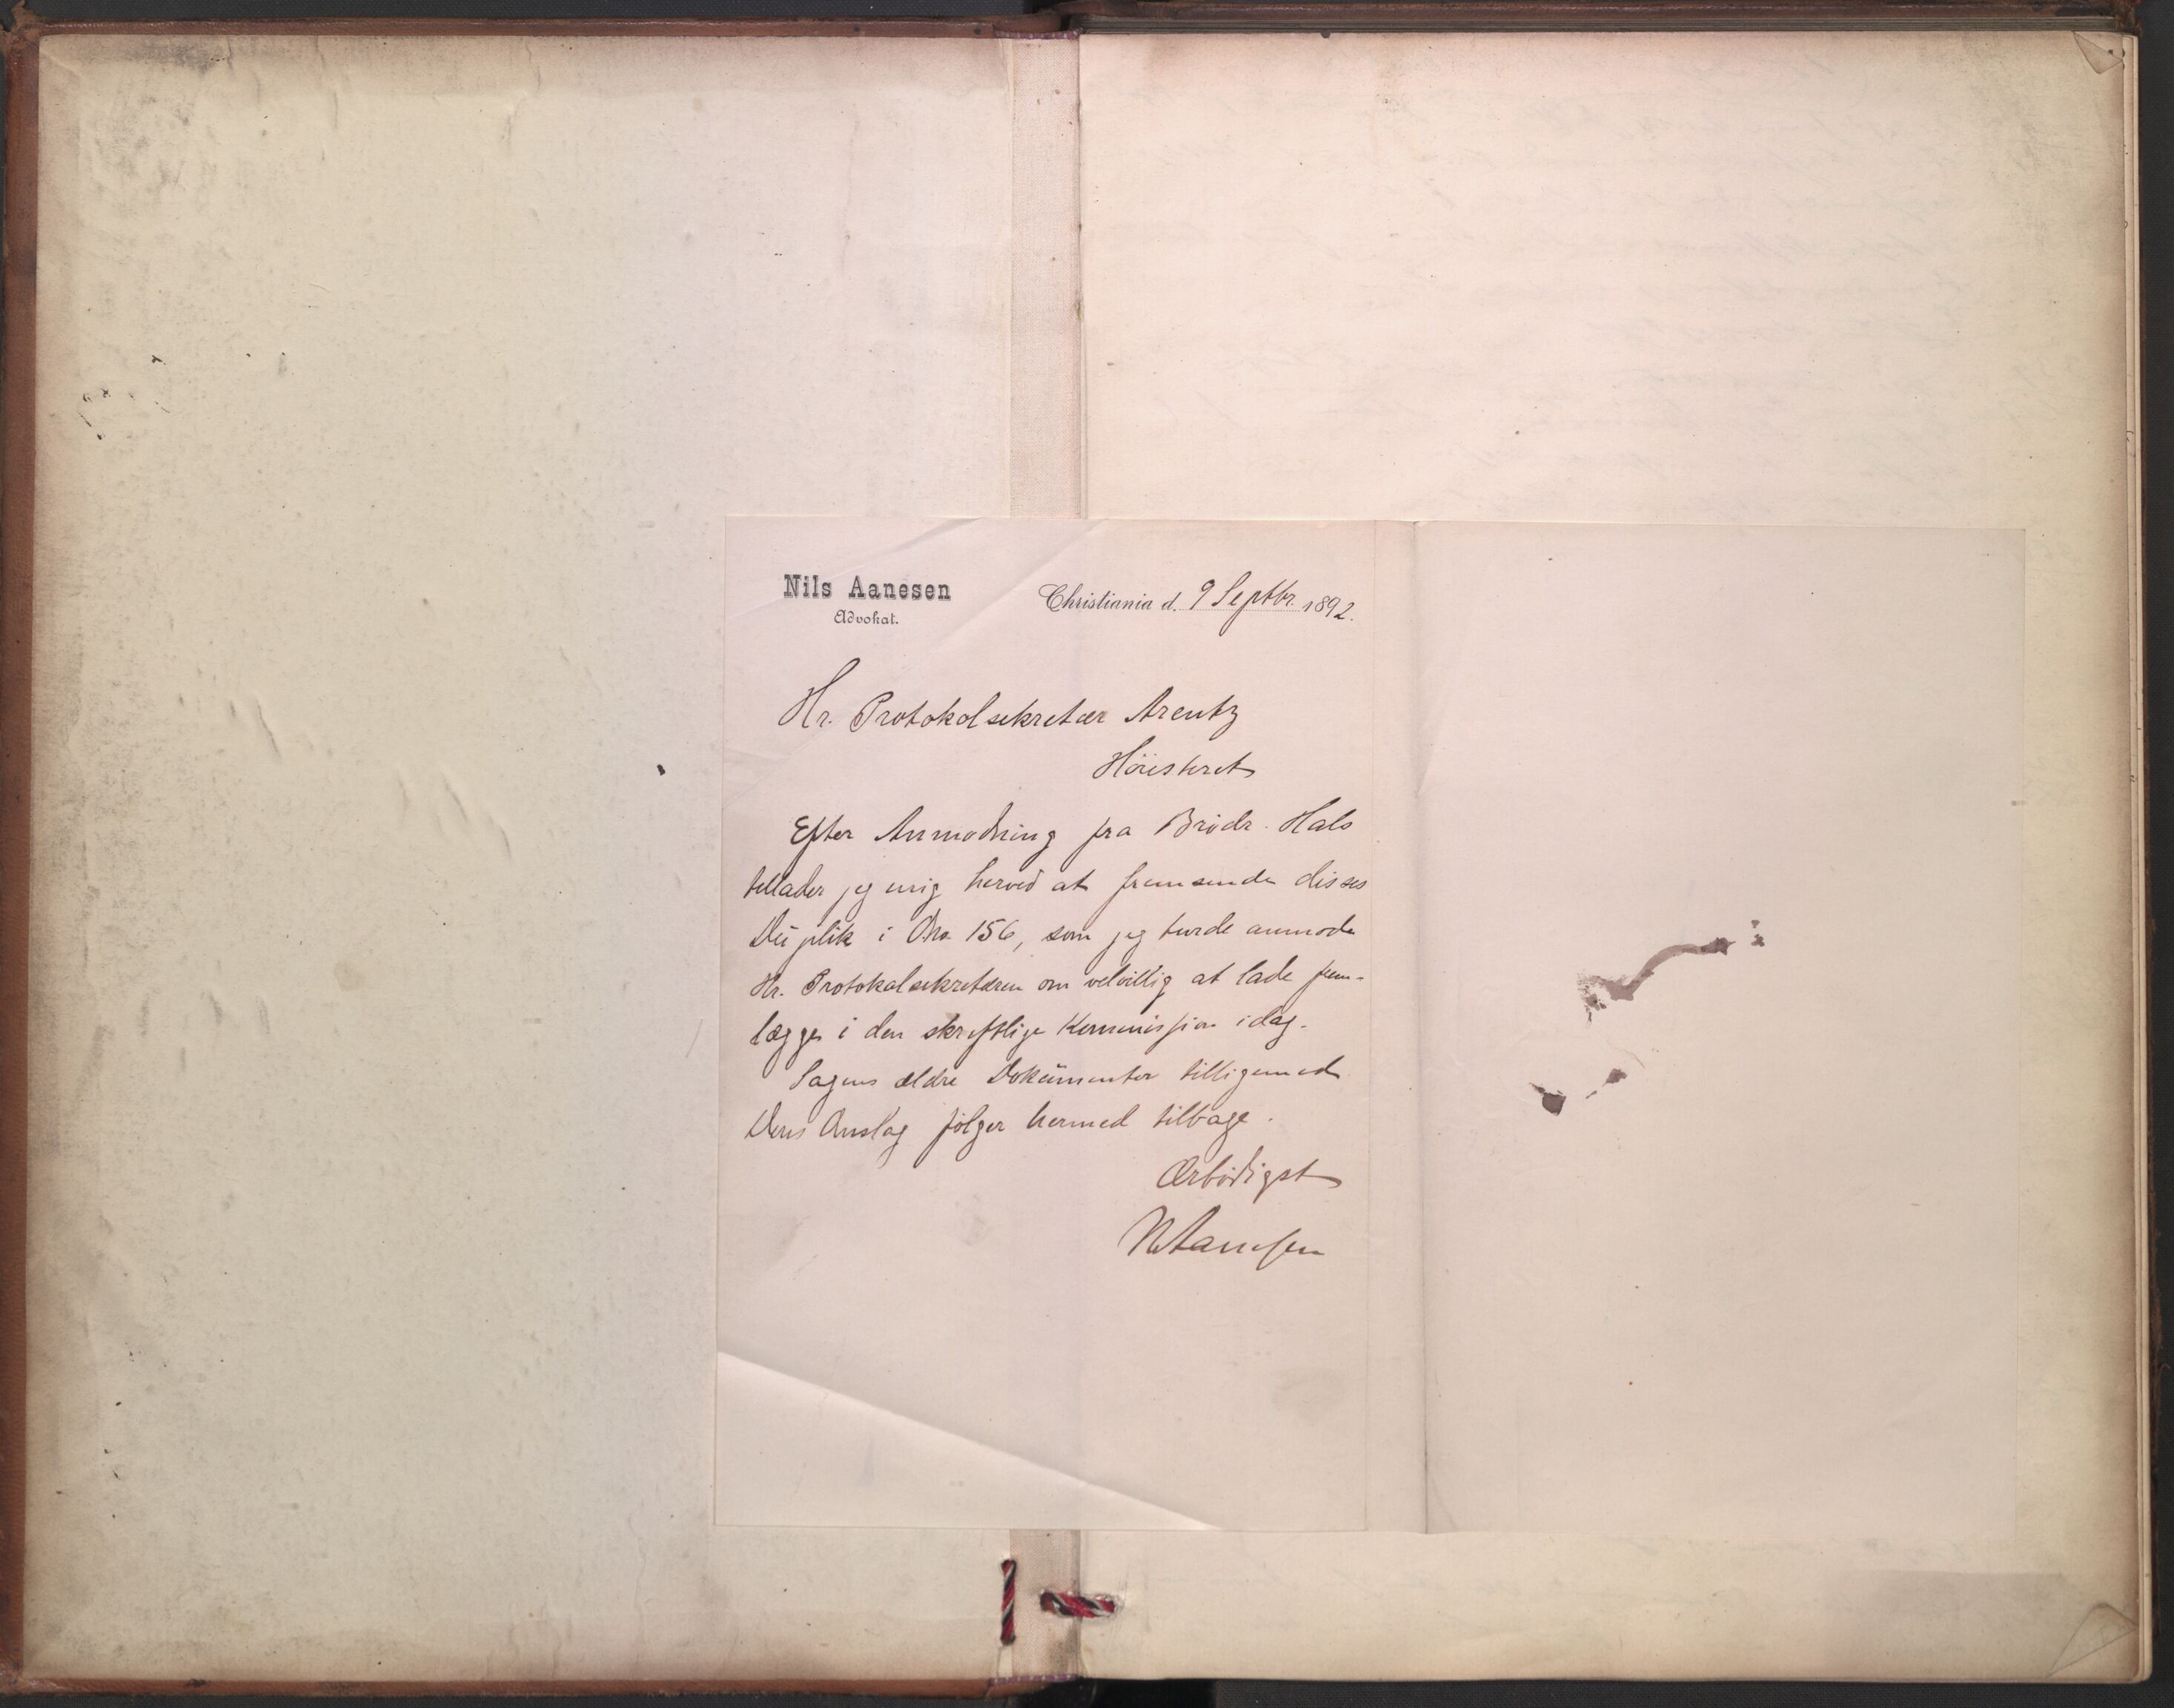 Nils Aanesen
Advokat.
Christiania d. 9 Septbr. 1892.
Hr. Protokolsekretær Arentz
Höiesteret
Efter Anmodning fra Brödr. Hals
tillader jeg mig herved at fremsende disses
Duplik i No. 156, som jeg turde anmode
Hr. Protokolsekretæren om velvillig at lade frem-
lægge i den skriftlige Kommission idag.
Sagens ældre Dokumenter tilligemed
Deres Anslag fölger hermed tilbage.
Ærbödigst
N Aanesen